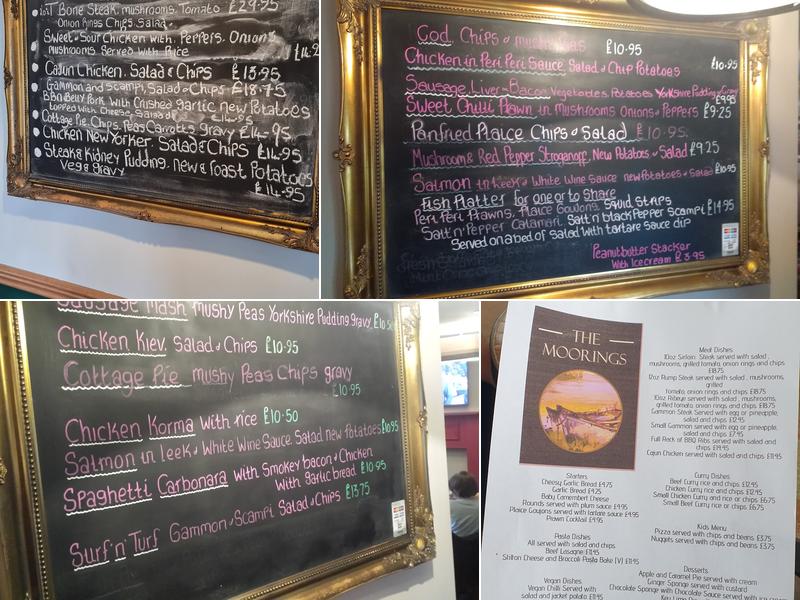 T Bone Steak, mushrooms, Tomato £29.95
Onion Rings Chips Salad.
Sweet n Sour Chicken with Peppers. Onions
mushrooms. Served with Rice
Cajun Chicken. Salad & Chips £13.95
Gammon and Scampi, Salad & Chips £18.75
BBQ Belly Pork with Crushed garlic new Potatoes
topped with Cheese, Salad £14.95
Cottage Pie. Chips. Peas Carrots gravy £14.95
Chicken New Yorker. Salad & Chips £14.95
Steak & Kidney Pudding. new & roast Potatoes
Veg & gravy £14.95
God. Chips & mushy Peas £10.95
Chicken in Peri Peri Sauce Salad & Chip Potatoes £10.95
Sausage Liver & Bacon Vegetables Potatoes Yorkshire Pudding Gravy £9.95
Sweet Chilli Prawn in Mushrooms Onions & Peppers £9.25
Panfried Plaice Chips & Salad £10.95.
Mushroom & Red Pepper Stroganoff. New Potatoes & Salad £9.25
Salmon in Leek & White Wine Sauce new Potatoes & Salad £10.95
Fish Platter for one or to Share
Peri Peri Prawns, Plaice Goujons, Squid Strips
Salt n' Pepper Calamari, Salt n' black Pepper Scampi £14.95
Served on a bed of Salad with tartare Sauce dip
Peanutbutter Stacker
With Icecream £3.95
Sausage Mash Mushy Peas Yorkshire Pudding gravy £10.95
Chicken Kiev. Salad & Chips £10.95
Cottage Pie mushy Peas Chips gravy
£10.95
Chicken Korma with rice £10.50
Salmon in leek & White Wine Sauce. Salad new Potatoes £10.95
Spaghetti Carbonara with Smokey bacon & Chicken
With garlic bread. £10.95
Surf 'n' Turf Gammon & Scampi. Salad & Chips £13.75
THE
MOORINGS
Meat Dishes
10oz Sirloin Steak served with salad,
mushrooms, grilled tomato, onion rings and chips
£18.75
12oz Rump Steak served with salad, mushrooms,
grilled
tomato, onion rings and chips £18.75
10oz Ribeye served with salad, mushrooms,
grilled tomato, onion rings and chips £18.75
Gammon Steak Served with egg or pineapple,
salad and chips £12.95
Small Gammon served with egg or pineapple,
salad and chips £7.45
Full Rack of BBQ Ribs served with salad and
chips £14.95
Cajun Chicken served with salad and chips £11.45
Starters
Cheesy Garlic Bread £4.75
Garlic Bread £4.25
Baby Camembert Cheese
Rounds served with plum sauce £4.95
Plaice Goujons served with tartare sauce £4.95
Prawn Cocktail £4.95
Curry Dishes
Beef Curry rice and chips £12.45
Chicken Curry rice and chips £12.45
Small Chicken Curry and rice or chips £6.75
Small Beef Curry rice or chips £6.75
Kids Menu
Pizza served with chips and beans £3.75
Nuggets served with chips and beans £3.75
Pasta Dishes
All served with salad and chips.
Beef Lasagne £11.45
Stilton Cheese and Broccoli Pasta Bake (V) £11.45
Desserts
Apple and Caramel Pie served with cream
Ginger Sponge served with custard
Chocolate Sponge with Chocolate Sauce served with
Vegan Dishes
Vegan Chilli Served with
salad and jacket potato £11.45